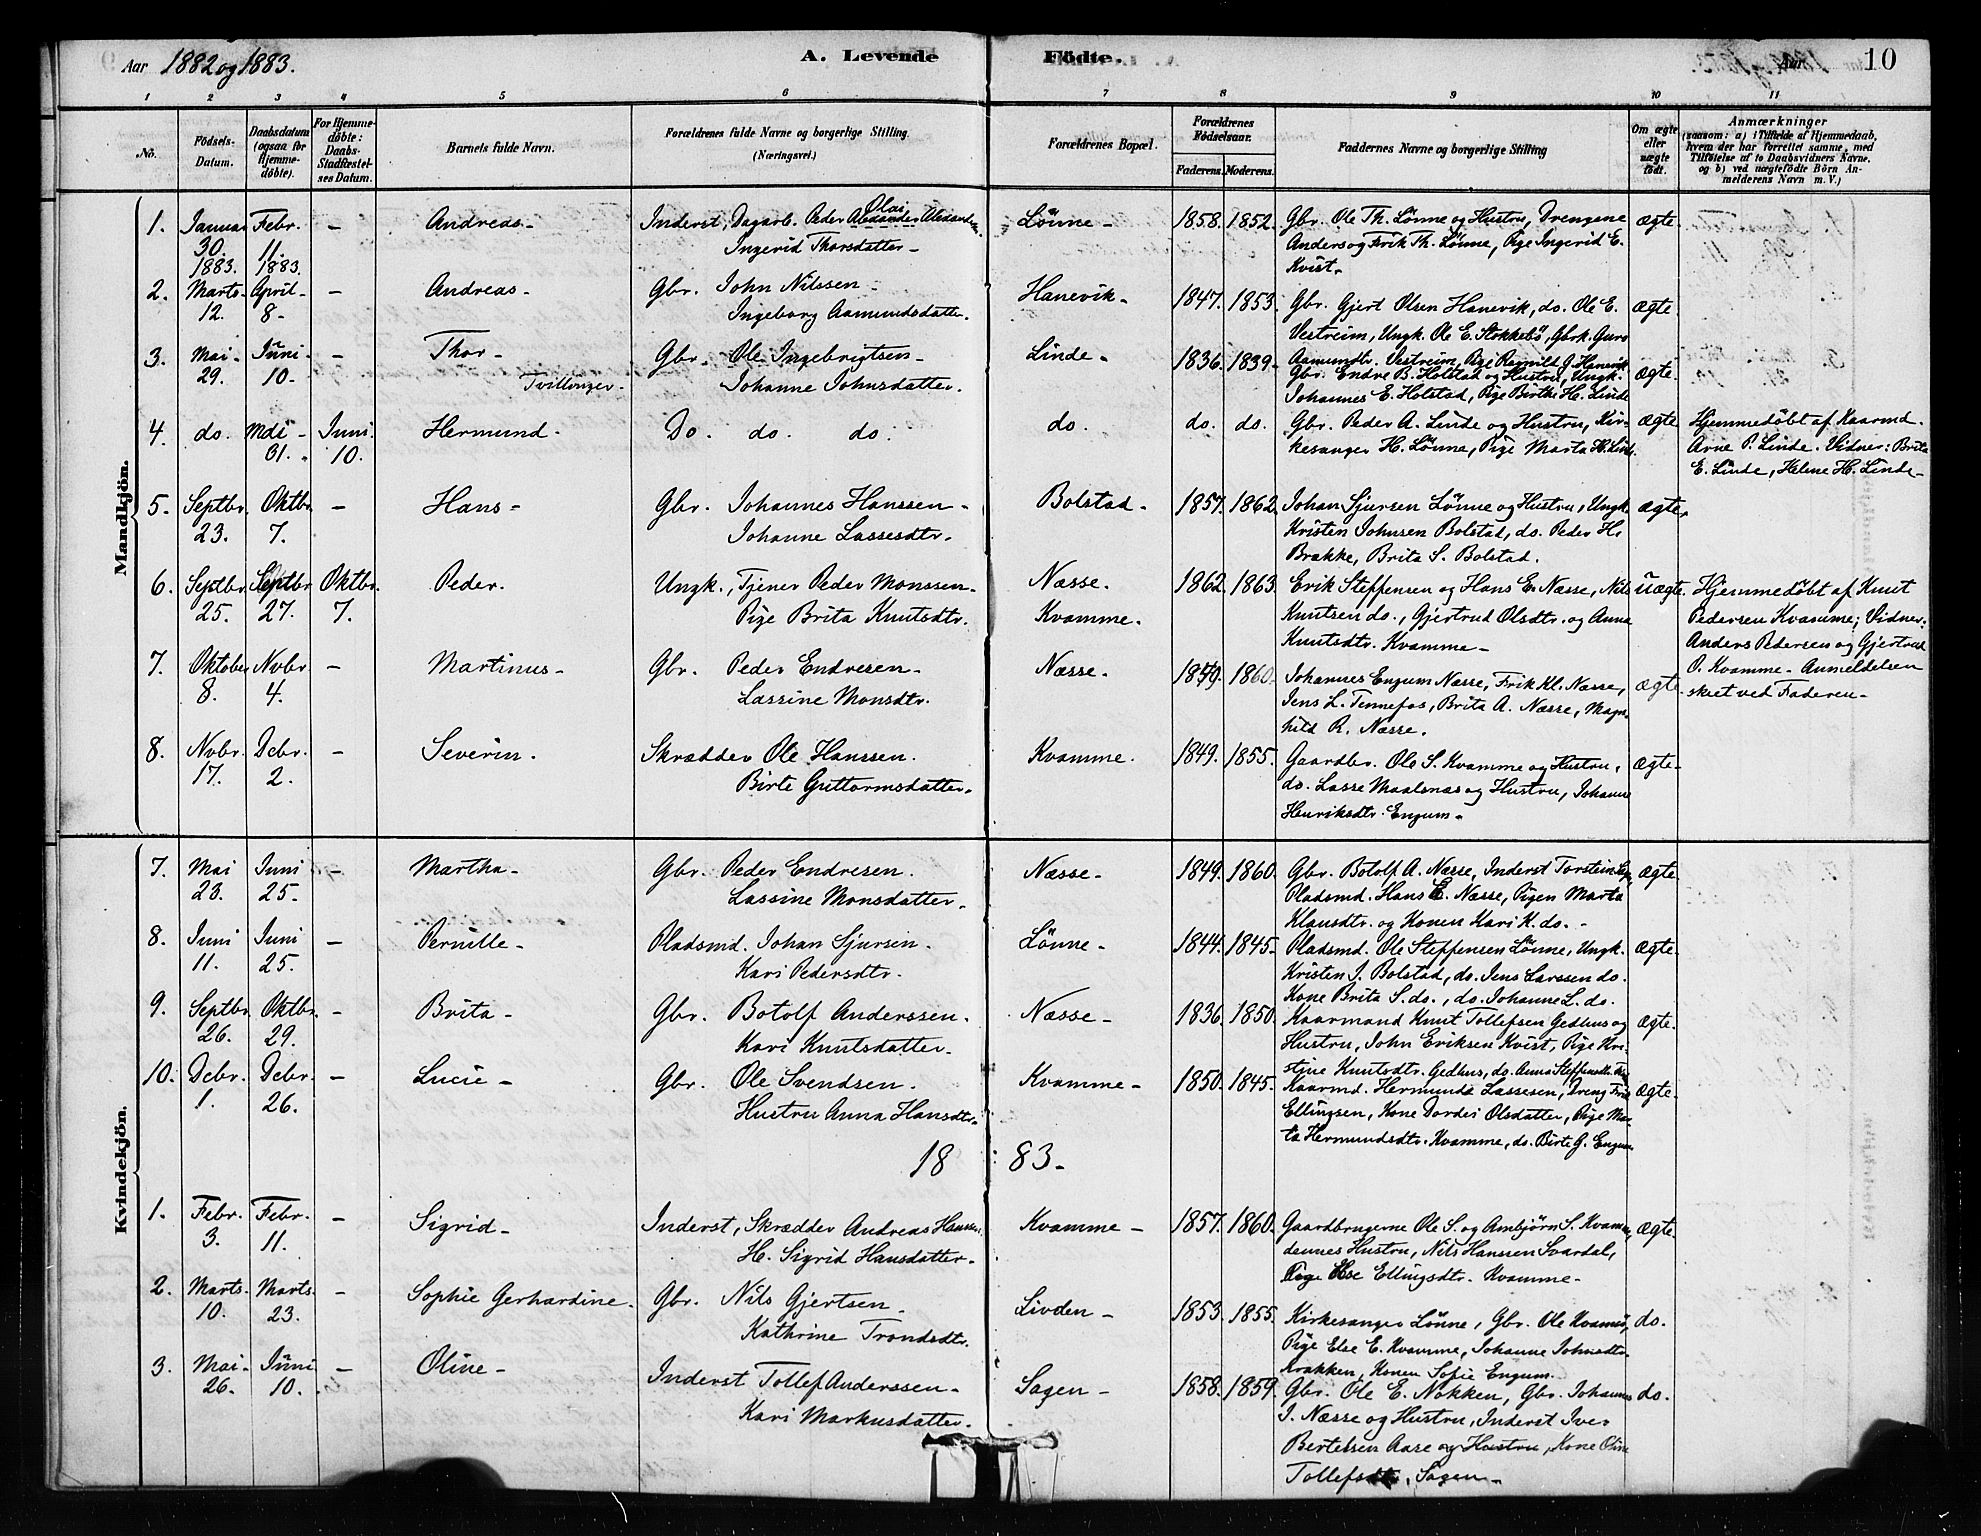 Aar 1882 og 1883. A. Levende Fødte. Aar 10
1 2 3 4 5 6 7 8 9 10 11
No. Födsels-Datum. Daabsdatum (ogsaa for Hjemme-döbte). For Hjemme-döbte: Daabs-Stadfæstel-ses Datum. Barnets fulde Navn. Forældrenes fulde Navne og borgerlige Stilling. (Næringsvei.) Forældrenes Bopæl. Forældrenes Födselsaar. Faderens. Moderens. Faddernes Navne og borgerlige Stilling Om ægte eller uægte födt. Anmærkninger (saasom: a) i Tilfælde af Hjemmedaab, hvem der har forrettet samme, med Tilføielse af to Daabsvidners Navne. og b) ved uægtefödte Börn An-melderens Navn m. V.)
Mandkjön.
1. Januar Febr. - Andreas - Inderst, Dagarb. Peder Olai Lönne - 1858. 1852. Gbr. Ole Th. Lönne og Hustru, Drengene ægte
30. 11. Ingerid Thorsdatter - Anders og Erik Th. Lönne, Pige Ingerid E.
1883. 1883. Kvist.
2. Marts April - Andreas - Gbr. John Nilssen - Hanevik - 1847. 1853. Gbr. Gjert Olsen Hanevik, do. Ole E. ægte.
12. 8 - Ingeborg Aamundsdatter. Vestreim, Ungk. Ole E. Stokkebö, Gbrk. Guro
3. Mai - Juni - - Thor - Gbr. Ole Ingebrigtsen - Linde - 1836. 1839. Aamundtr. Vestreim, Pige Ragnild G. Hanevik
29. 10. Tvillinger - Johanne Johnsdatter. Gbr. Endre B. Holstad og Hustru, Ungk. ægte.
Johannes E. Holstad, Pige Birthe H. Linde
4. do. Mai - Juni Hermund - Do. do. do. do. do. do. Gbr. Peder A. Linde og Hustru, Kir- ægte Hjemmedöbt af Kaarmd.
31. 10. kesanger H. Lönne, Pige Marta H. Linde. Arne P. Linde. Vidner: Brita
E. Linde, Helene H. Linde -
5. Septbr. Oktbr. - Hans - Gbr. Johannes Hanssen - Bolstad - 1857. 1862. Johan Sjursen Lönne og Hustru, Ungk. ægte.
23. 7. Johanne Lassesdtr. Kristen Johnsen Bolstad, do. Peder H.
Brakke, Brita S. Bolstad.
6. Septbr. Septbr. Oktbr. Peder. Ungk., Tjener Peder Monssen - Næsse. 1862. 1863. Erik Steffensen og Hans E. Næsse, Nils uægte. Hjemmedöbt af Knut
25. 27. 7. Pige Brita Knutsdtr. Kvamme. Knutsen do., Gjertrud Olsdtr. og Anna Pedersen Kvamme; Vidner:
Knutsdtr. Kvamme - Anders Pedersen og Gjertrud
7. Oktober Novbr. - Martinus - Gbr. Peder Endresen - Næsse. 1860. Johannes Engum Næsse, Erik Kl. Næsse, ægte. O. Kvamme - Anmeldelsen
8. 4. Lassine Monsdtr. Jens L. Tennefos, Brita A. Næsse, Magn- skeet ved Faderen -
hild R. Næsse.
8. Novbr. Debr. - Severin. Skrædder Ole Hanssen. Kvamme. 1849. 1855. Gaardbr. Ole S. Kvamme og Hustru, ægte -
17. 2. Birte Guttormsdatter - do. Lasse Maalsnæs og Hustru, Johanne
Henriksdtr. Engum -
Kvindekjön.
7. Mai Juni - Martha - Gbr. Peder Endresen. Næsse - 1849. 1860. Gbr. Botolf A. Næsse, Inderst Torstein ægte.
23. 25. Lassine Monsdatter. Pladsmd. Hans E. Næsse, Pigen Marta
Klausdtr. og Konen Kari K. do. -
8. Juni Juni - Pernille - Pladsmd. Johan Sjursen. Lönne - 1844. 1845. Pladsmd. Ole Steffensen Lönne, Ungk. ægte.
11. 25. Kari Pedersdtr. Kristen J. Bolstad, do. Jens Larssen do.
Kone Brita S. do., do. Johanne L. do.
9. Septbr. Oktbr. - Brita - Gbr. Botolf Anderssen. Næsse - 1836. 1850. Kaarmand Knut Tollefsen Gedhus og ægte.
26. 29. Kari Knutsdatter. Hustru, John Eriksen Kvist, Pige Kri-
stine Knutsdtr. Gedhus, do. Anna Steffensdtr.
10. Debr. Debr. - Lucie - Gbr. Ole Svendsen. Kvamme - 1850. 1845. Kaarmd. Hermund Lassesen, Dreng Erik ægte.
1. 26. Hustru Anna Hansdtr. Ellingsen, Kone Dordei Olsdatter, Pige Mar-
ta Hermundsdtr. Kvamme, do. Birte G. Engum
1883.
1. Febr. Febr. - Sigrid - Inderst, Skrædder Andreas Hanssen Kvamme - 1857. 1860. Gaardbrugerne Ole S. og Ambjörn S. Kvamme, ægte
3. 11. H. Sigrid Hansdatter - dennes Hustru, Nils Hanssen Svardal,
Pige Else Ellingsdtr. Kvamme -
2. Marts. Marts. - Sophie Gerhardine. Gbr. Nils Gjertsen. Livden - 1853. 1855. Kirkesanger Lönne, Gbr. Ole Kvamme, do.
10. 23. Kathrine Trondsdtr. Pige Else E. Kvamme, Johanne Johnsdtr.
Brakken, Konen Sofie Engum.
3. Mai - Juni - Oline - Inderst Tollef Anderssen - Sagen - 1858. 1859. Gbr. Ole E. Nokken, Gbr. Johannes do.
26. 10. Kari Markusdatter. J. Næsse og Hustru, Inderst Iver
Bertelsen Aare og Hustru, Kone Oline
Tollefsdtr. Sagen -